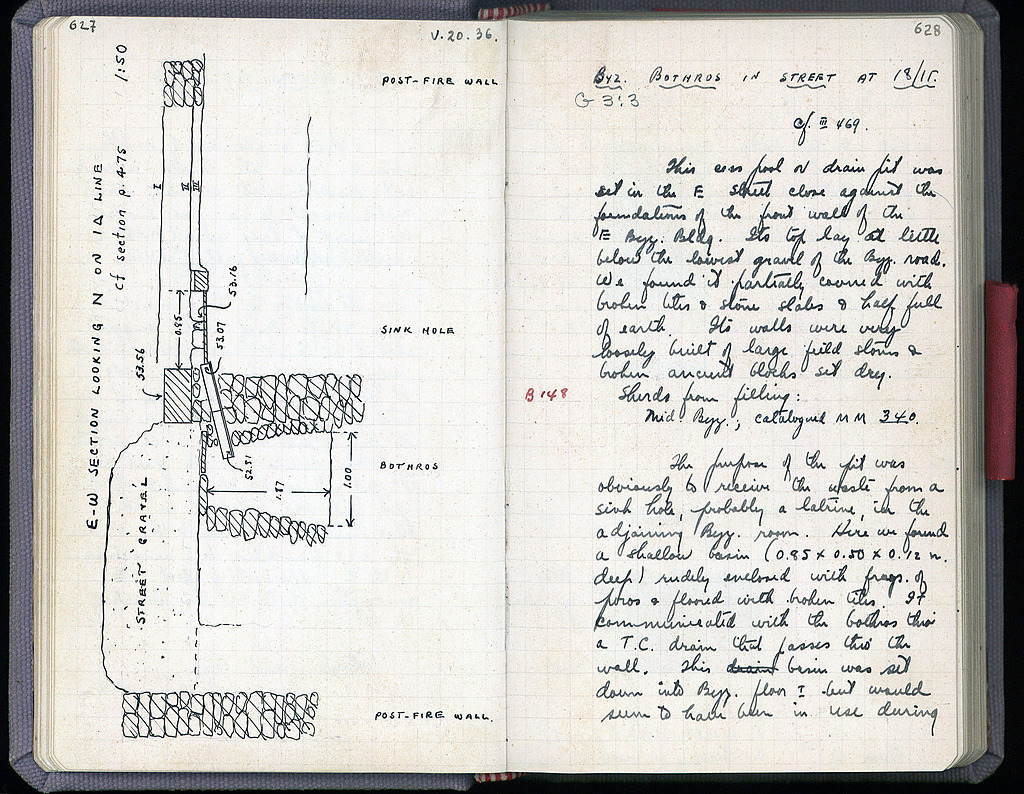 627
V.20.36.
E-W SECTION LOOKING N ON 1Δ LINE
1:50
cf section p. 475
POST-FIRE WALL
I
II
III
53.16
0.85
53.07
53.56
SINK HOLE
52.51
BOTHROS
1.00
STREET GRAVEL
POST-FIRE WALL.
628
Byz. BOTHROS IN STREET AT 18/ΙΓ.
G 3:3
cf. III 469.
This cess pool or drain pit was
set in the E street close against the
foundations of the front wall of the
E Byz. Bldg. Its top lay at little
below the lowest gravel of the Byz. road.
We found it partially covered with
broken tiles & stone slabs & half full
of earth. Its walls were very
loosely built of large field stones &
broken ancient blocks set dry.
B 148
Sherds from filling:
Mid. Byz., catalogued MM 340.
The purpose of the pit was
obviously to receive the waste from a
sink hole, probably a latrine, in the
adjoining Byz. room. Here we found
a shallow basin (0.85 x 0.50 x 0.12 m.
deep) rudely enclosed with frags. of
poros & floored with broken tiles. It
communicated with the bothros thro'
a T.C. drain that passes thro' the
wall. This drain basin was set
down into Byz. floor I but would
seem to have been in use during